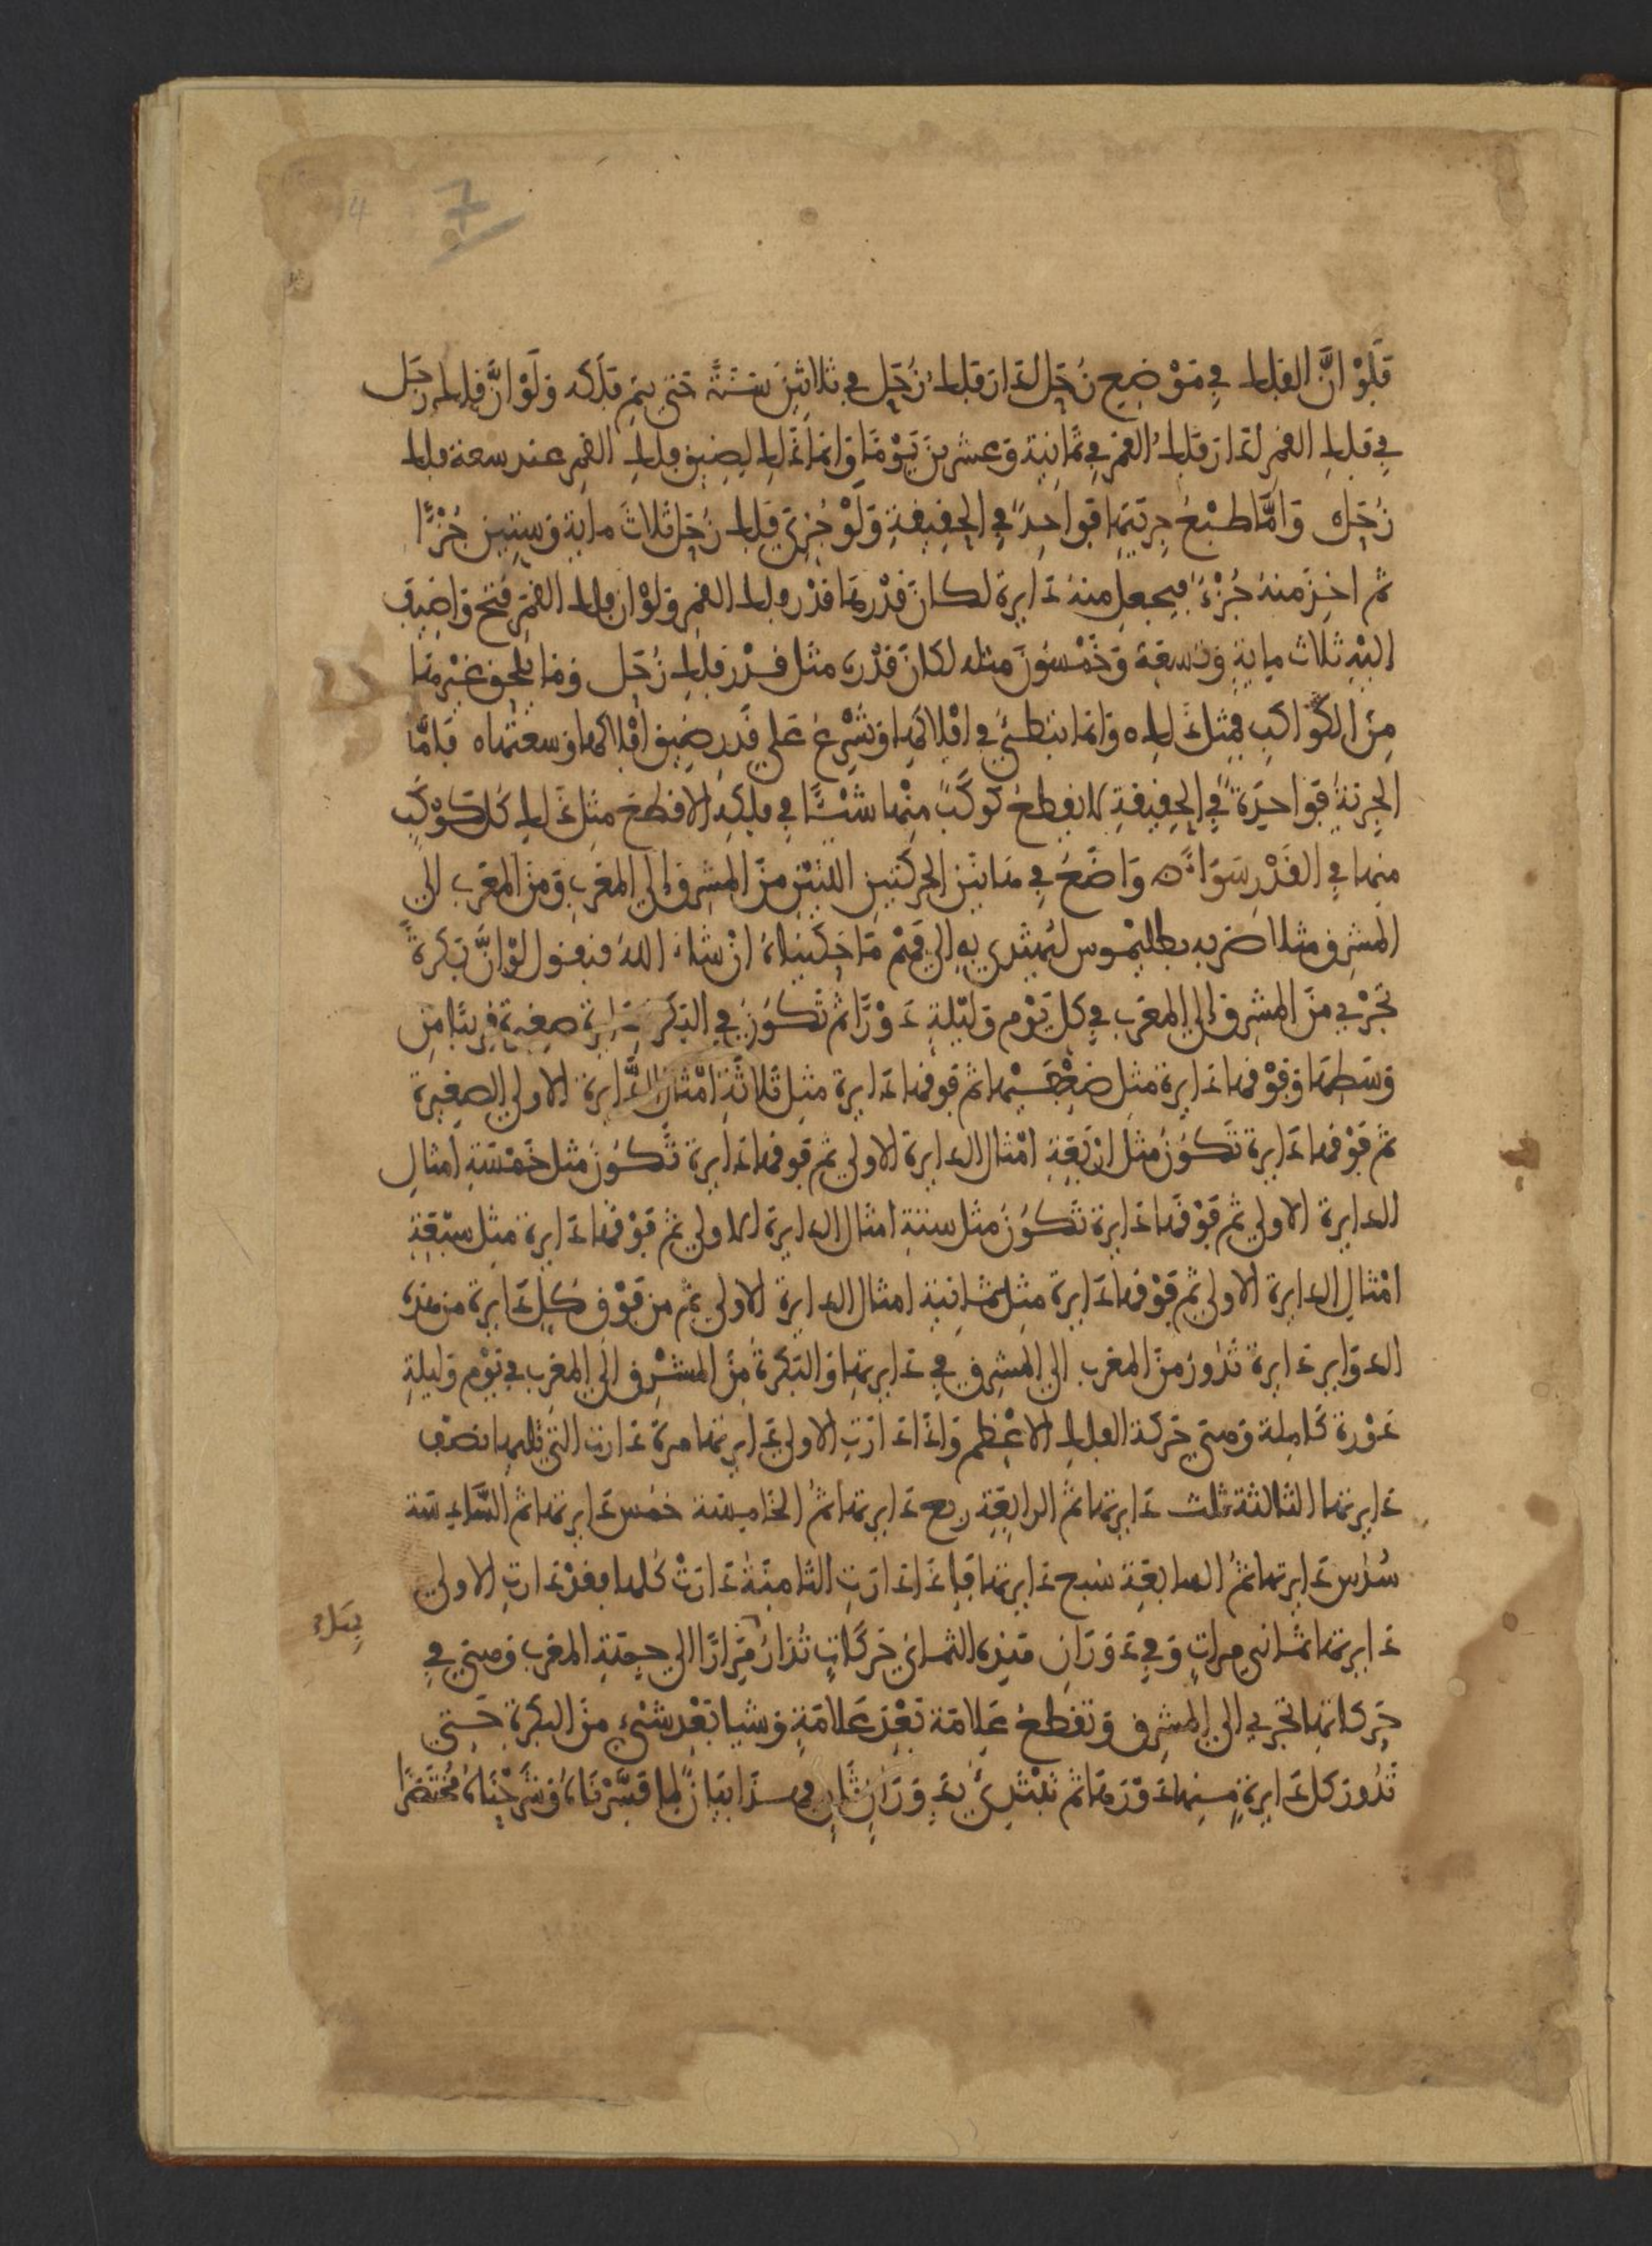 7
4
فلو ان الفلك في موضع زحل لدار فلك زحل في ثلاثين سنة حتى يتم فلكه ولو ان فلك زحل
في فلك القمر لدار فلك القمر في ثمانية وعشرين يوما وانما ذلك لضيق فلك القمر عند سعة فلك
زحل واما طبع جريتها فواحد في الحقيقة ولو جزي فلك زحل ثلاث ماية وستين جزءا
ثم اخذ منه جزء فيجعل منه دايرة لكان قدرها قدر فلك القمر ولو ان فلك القمر فتح واضيف
اليه ثلاث ماية وتسعة وخمسون مثله لكان قدره مثل قدر فلك زحل وما يلحق غيرها
من الكواكب فمثل ذلك وانما تبطئ في افلاكها وتسرع على قدر ضيق افلاكها وسعتها فاما
الجرية فواحدة في الحقيقة لا يقطع كوكب منها شيئا في فلكه الا قطع مثل ذلك كل كوكب
منها في القدر سواء واضع في هاتين الحركتين اللتين من المشرق الى المغرب ومن المغرب الى
المشرق مثلا ضربه بطليموس ليهتدي به الى فهم ما حكيناه ان شاء الله فنقول لو ان بكرة
تجري من المشرق الى المغرب في كل يوم وليلة دورا ثم تكون في البكرة دايرة صغيرة قريبا من
وسطها وفوقها دايرة مثل ضعفيها ثم فوقها دايرة مثل ثلاثة امثال الدايرة الاولى الصغيرة
ثم فوقها دايرة تكون مثل اربعة امثال الدايرة الاولى ثم فوقها دايرة تكون مثل خمسة امثال
الدايرة الاولى ثم فوقها دايرة تكون مثل ستة امثال الدايرة الاولى ثم فوقها دايرة مثل سبعة
امثال الدايرة الاولى ثم فوقها دايرة مثل ثمانية امثال الدايرة الاولى ثم من فوق كل دايرة من هذه
الدواير دايرة تدور من المغرب الى المشرق في دايرتها والبكرة من المشرق الى المغرب في يوم وليلة
دورة كاملة وهي حركة الفلك الاعظم واذا دارت الاولى دايرتها مرة دارت التي تليها نصف
دايرتها الثالثة ثلث دايرتها ثم الرابعة ربع دايرتها ثم الخامسة خمس دايرتها ثم السادسة
سدس دايرتها ثم السابعة سبع دايرتها فاذا دارت الثامنة دارت كلها فقد دارت الاولى
دايرتها ثماني مرات وفي دوران هذه الثماني حركات تدار مرارا الى جهة المغرب وهي في
حركاتها تجري الى المشرق وتقطع علامة بعد علامة وشيا بعد شيء من البكرة حتى
تدور كل دايرة منها دورها ثم تبتدئ بدوران ثان وهذا بيان لما فسرناه وشرحناه مختصرا